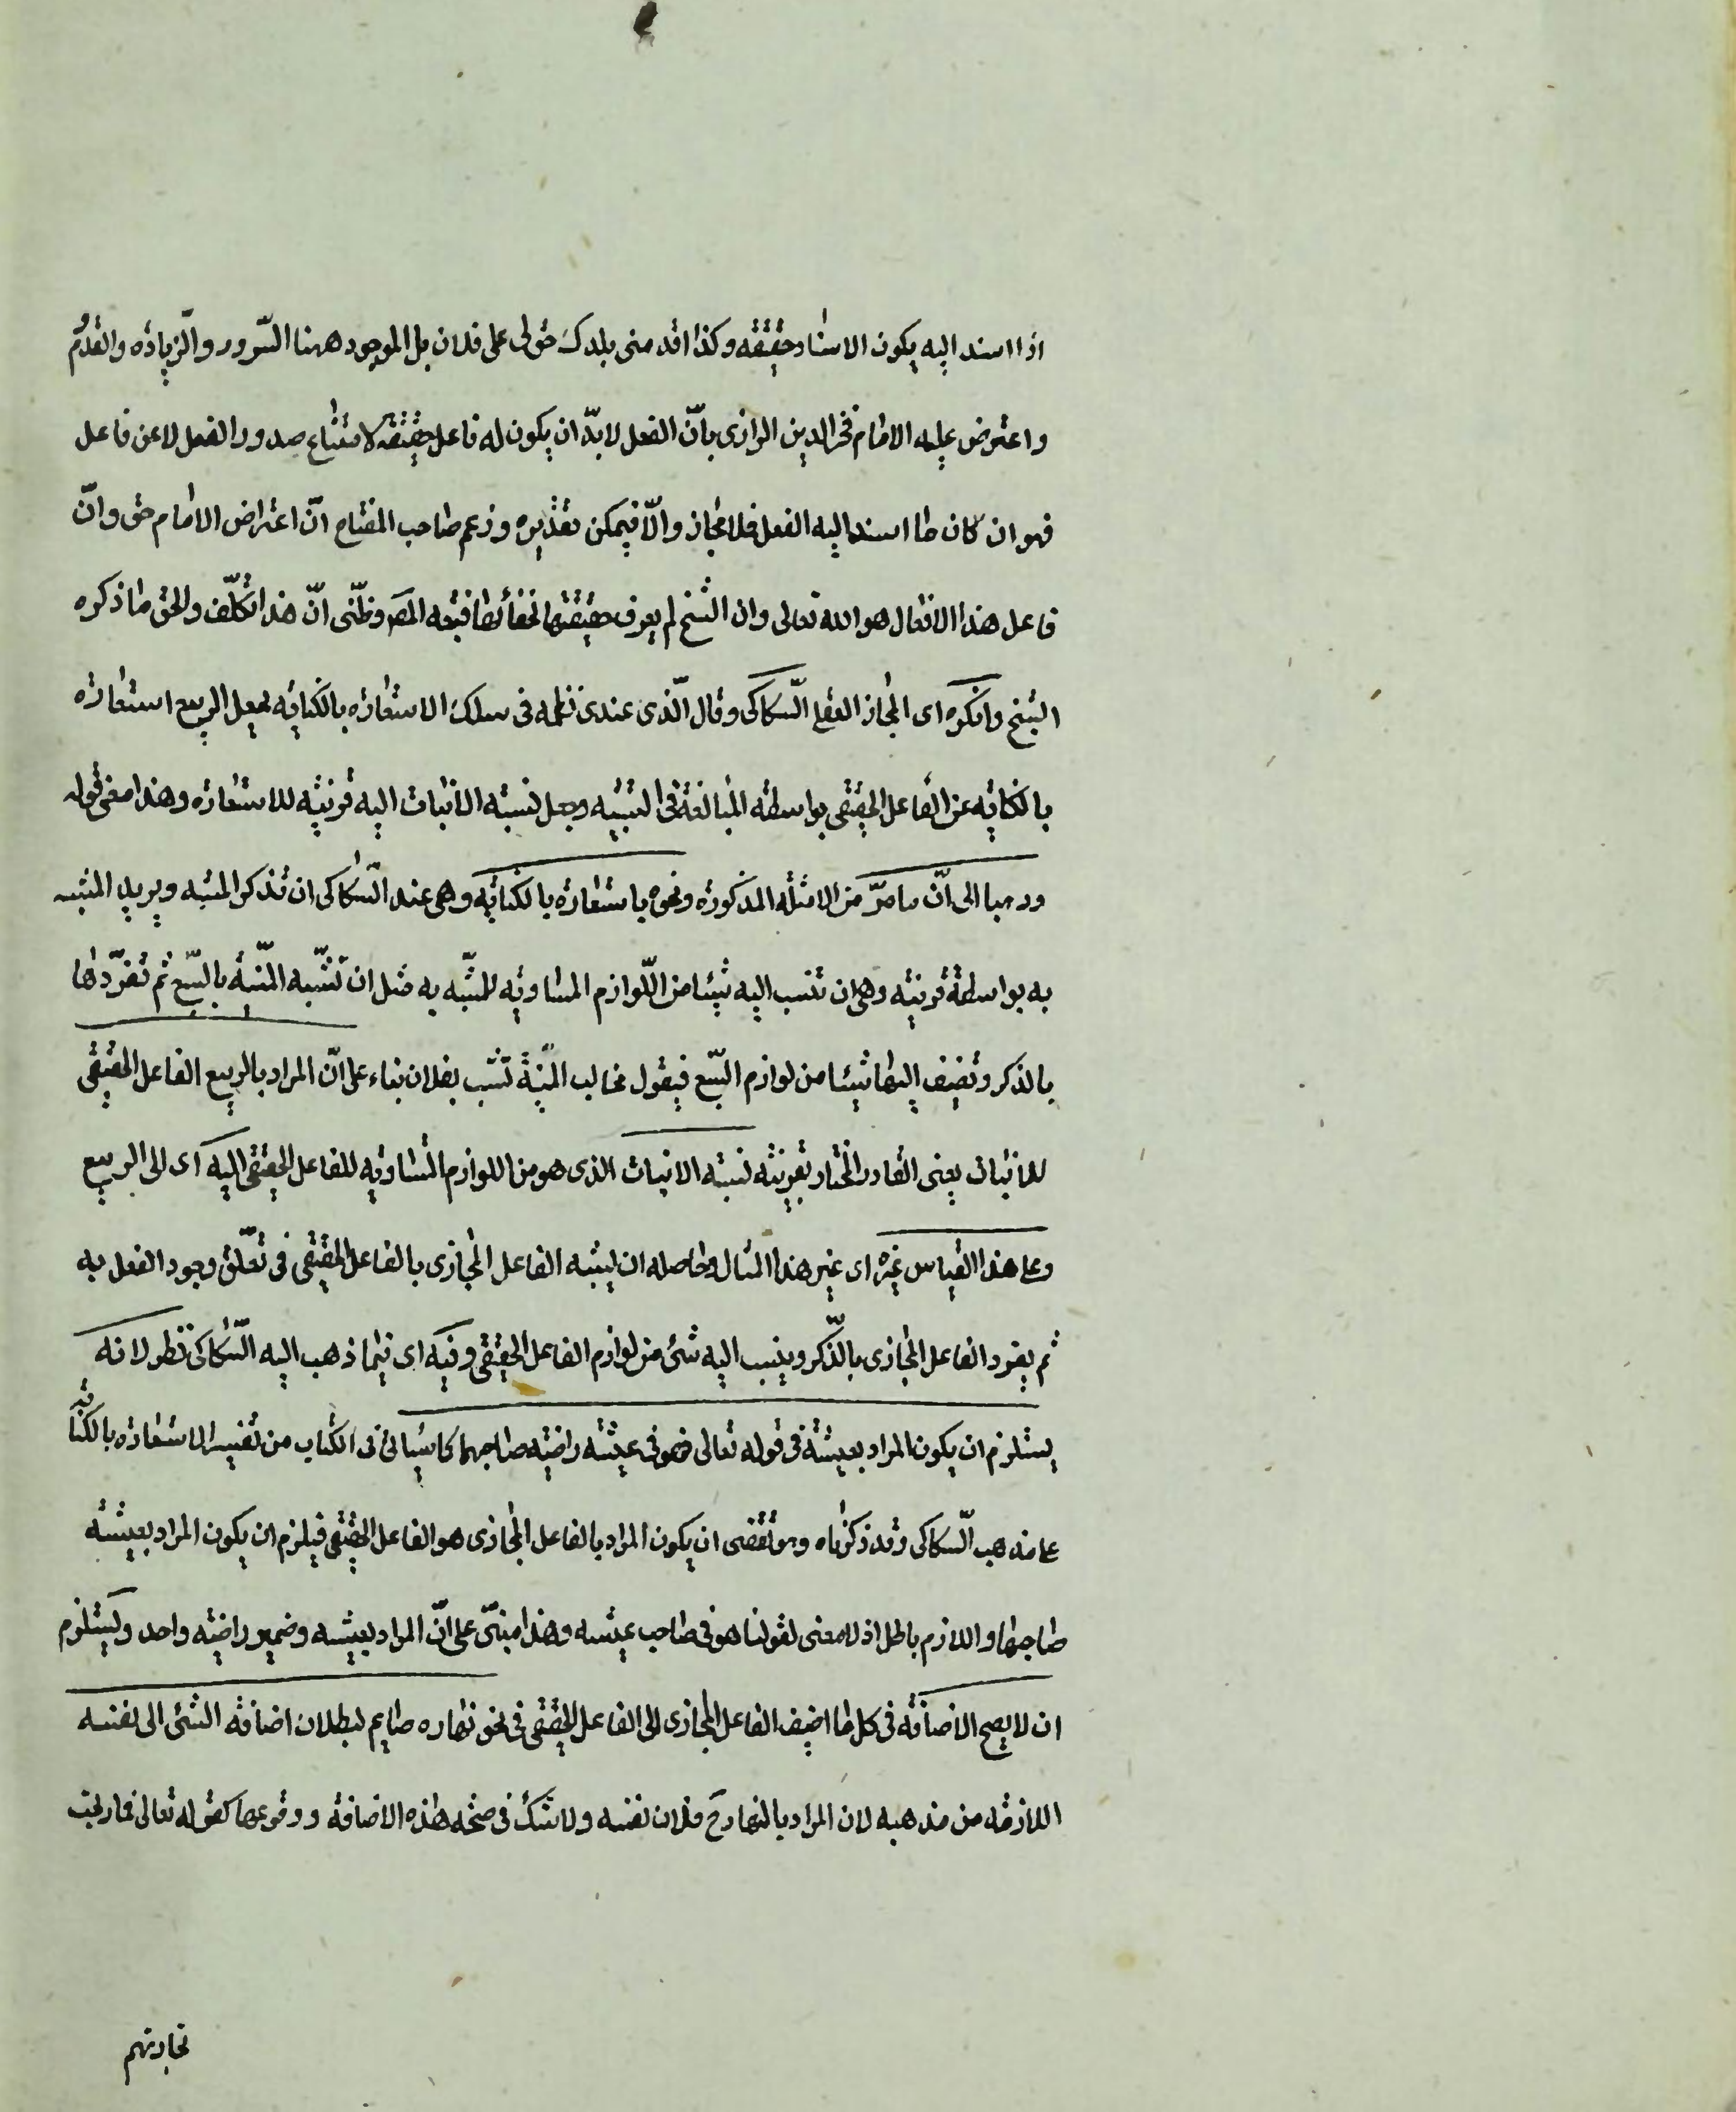 اذا اسند اليه يكون الاسناد حقيقة وكذا اقدمنى بلدك حق لى على فلان بل الموجود ههنا السّرور والزّيادة والقدوم
واعترض عليه الامام فخر الدين الرازى بانّ الفعل لابدّ ان يكون له فاعل حقيقة لامتناع صدور الفعل لا عن فاعل
فهو ان كان ما اسند اليه الفعل فلا مجاز والّا فيمكن تقديره وزعم صاحب المفتاح انّ اعتراض الامام حق وانّ
فاعل هذا الافعال هو الله تعالى وان الشيخ لم يعرف حقيقتها لخفائها فتبعه المص وظنّى انّ هذا تكلّف والحق ما ذكره
الشيخ وانكره اى المجاز العقلى السّكاكى وقال الّذى عندى نظمه فى سلك الاستعارة بالكناية بجعل الربيع استعارة
بالكناية عن الفاعل الحقيقى بواسطة المبالغة فى التشبيه وجعل نسبة الانبات اليه قرينة للاستعارة وهذا معنى قوله
ذهبا الى انّ ما مرّ من الامثلة المذكورة ونحوه باستعارة بالكناية وهى عند السّكاكى ان تذكر المشبه ويريد المشبه
به بواسطة قرينة وهى ان تنسب اليه شيئا من اللّوازم المساوية للمشّبه به مثل ان تشّبه المنّية بالسّبع ثم تفرّدها
بالذكر وتضيف اليها شيئا من لوازم السّبع فيقول مخالب المنيّة نشبت بفلان بناء على انّ المراد بالربيع الفاعل الحقيقى
للانبات يعنى القادر المختار بقرينة نسبة الانبات الذى هو من اللوازم المساوية للفاعل الحقيقى اليه اى الى الربيع
وعلى هذا القياس غيره اى غير هذا المثال وحاصله ان يشبه الفاعل المجازى بالفاعل الحقيقى فى تعلّق وجود الفعل به
ثم يفرد الفاعل المجازى بالذّكر وينسب اليه شئ من لوازم الفاعل الحقيقى وفيه اى فيما ذهب اليه السّكاكى نظر لانه
يستلزم ان يكون المراد بعيشة فى قوله تعالى فهو فى عيشة راضية صاحبها كما سيأتى فى الكتاب من تفسير الاستعارة بالكناية
على مذهب السّكاكى وقد ذكرناه وهو تقتضى ان يكون المراد بالفاعل المجازى هو الفاعل الحقيقى فيلزم ان يكون المراد بعيشة
صاحبها واللازم باطل اذ لا معنى لقولنا هو فى صاحب عيشه وهذا مبنىّ على انّ المراد بعيشه وضمير راضية واحد ويستلزم
ان لا يصح الاضافة فى كل ما اضيف الفاعل المجازى الى الفاعل الحقيقى فى نحو نهاره صايم لبطلان اضافة الشئ الى نفسه
اللازمة من مذهبه لان المراد بالنهار ح فلان نفسه ولا شك فى صحة هذه الاضافة ووقوعها كقوله تعالى فما ربحت
تجارتهم